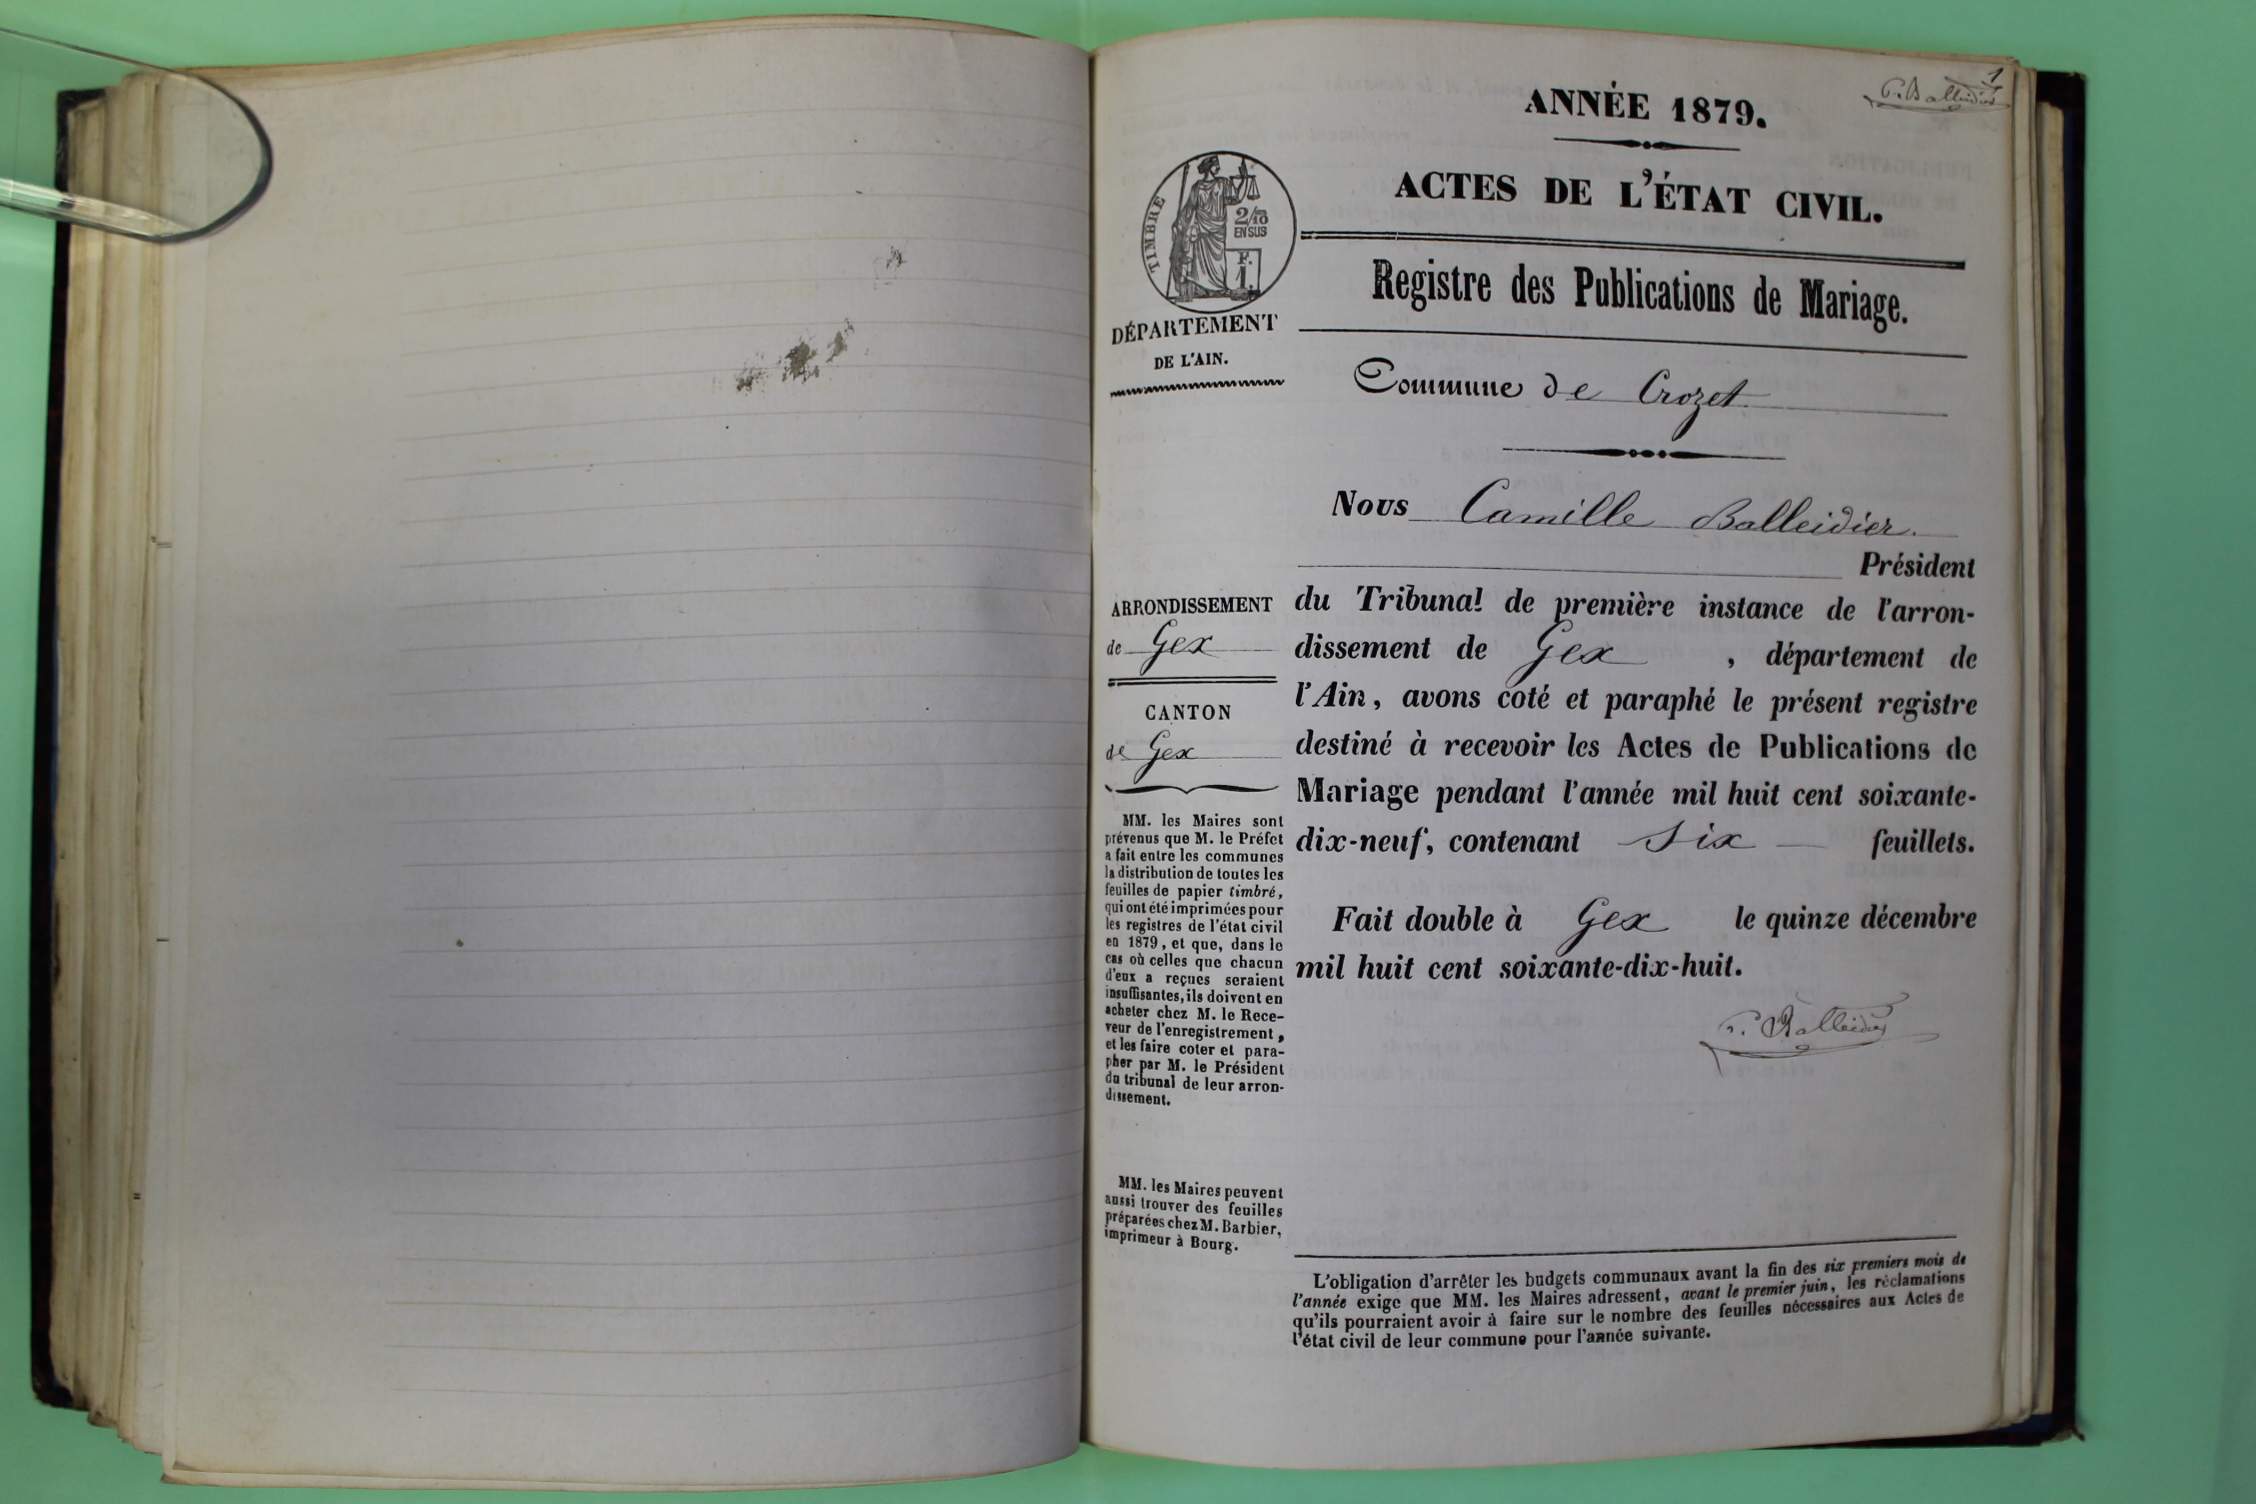 1
C. Balleidier
ANNÉE 1879.
ACTES DE L'ÉTAT CIVIL.
TIMBRE
2/10
EN SUS
F.
1.
Registre des Publications de Mariage.
DÉPARTEMENT
DE L'AIN.
Commune de Crozet
Nous Camille Balleidier.
Président
du Tribunal de première instance de l'arron-
dissement de Gex , département de
l'Ain, avons coté et paraphé le présent registre
destiné à recevoir les Actes de Publications de
Mariage pendant l'année mil huit cent soixante-
dix-neuf, contenant six feuillets.
Fait double à Gex le quinze décembre
mil huit cent soixante-dix-huit.
C. Balleidier
ARRONDISSEMENT
de Gex
CANTON
de Gex
MM. les Maires sont
prévenus que M. le Préfet
a fait entre les communes
la distribution de toutes les
feuilles de papier timbré,
qui ont été imprimées pour
les registres de l'état civil
en 1879, et que, dans le
cas où celles que chacun
d'eux a reçues seraient
insuffisantes, ils doivent en
acheter chez M. le Rece-
veur de l'enregistrement,
et les faire coter et para-
pher par M. le Président
du tribunal de leur arron-
dissement.
MM. les Maires peuvent
aussi trouver des feuilles
préparées chez M. Barbier,
imprimeur à Bourg.
L'obligation d'arrêter les budgets communaux avant la fin des six premiers mois de
l'année exige que MM. les Maires adressent, avant le premier juin, les réclamations
qu'ils pourraient avoir à faire sur le nombre des feuilles nécessaires aux Actes de
l'état civil de leur commune pour l'année suivante.